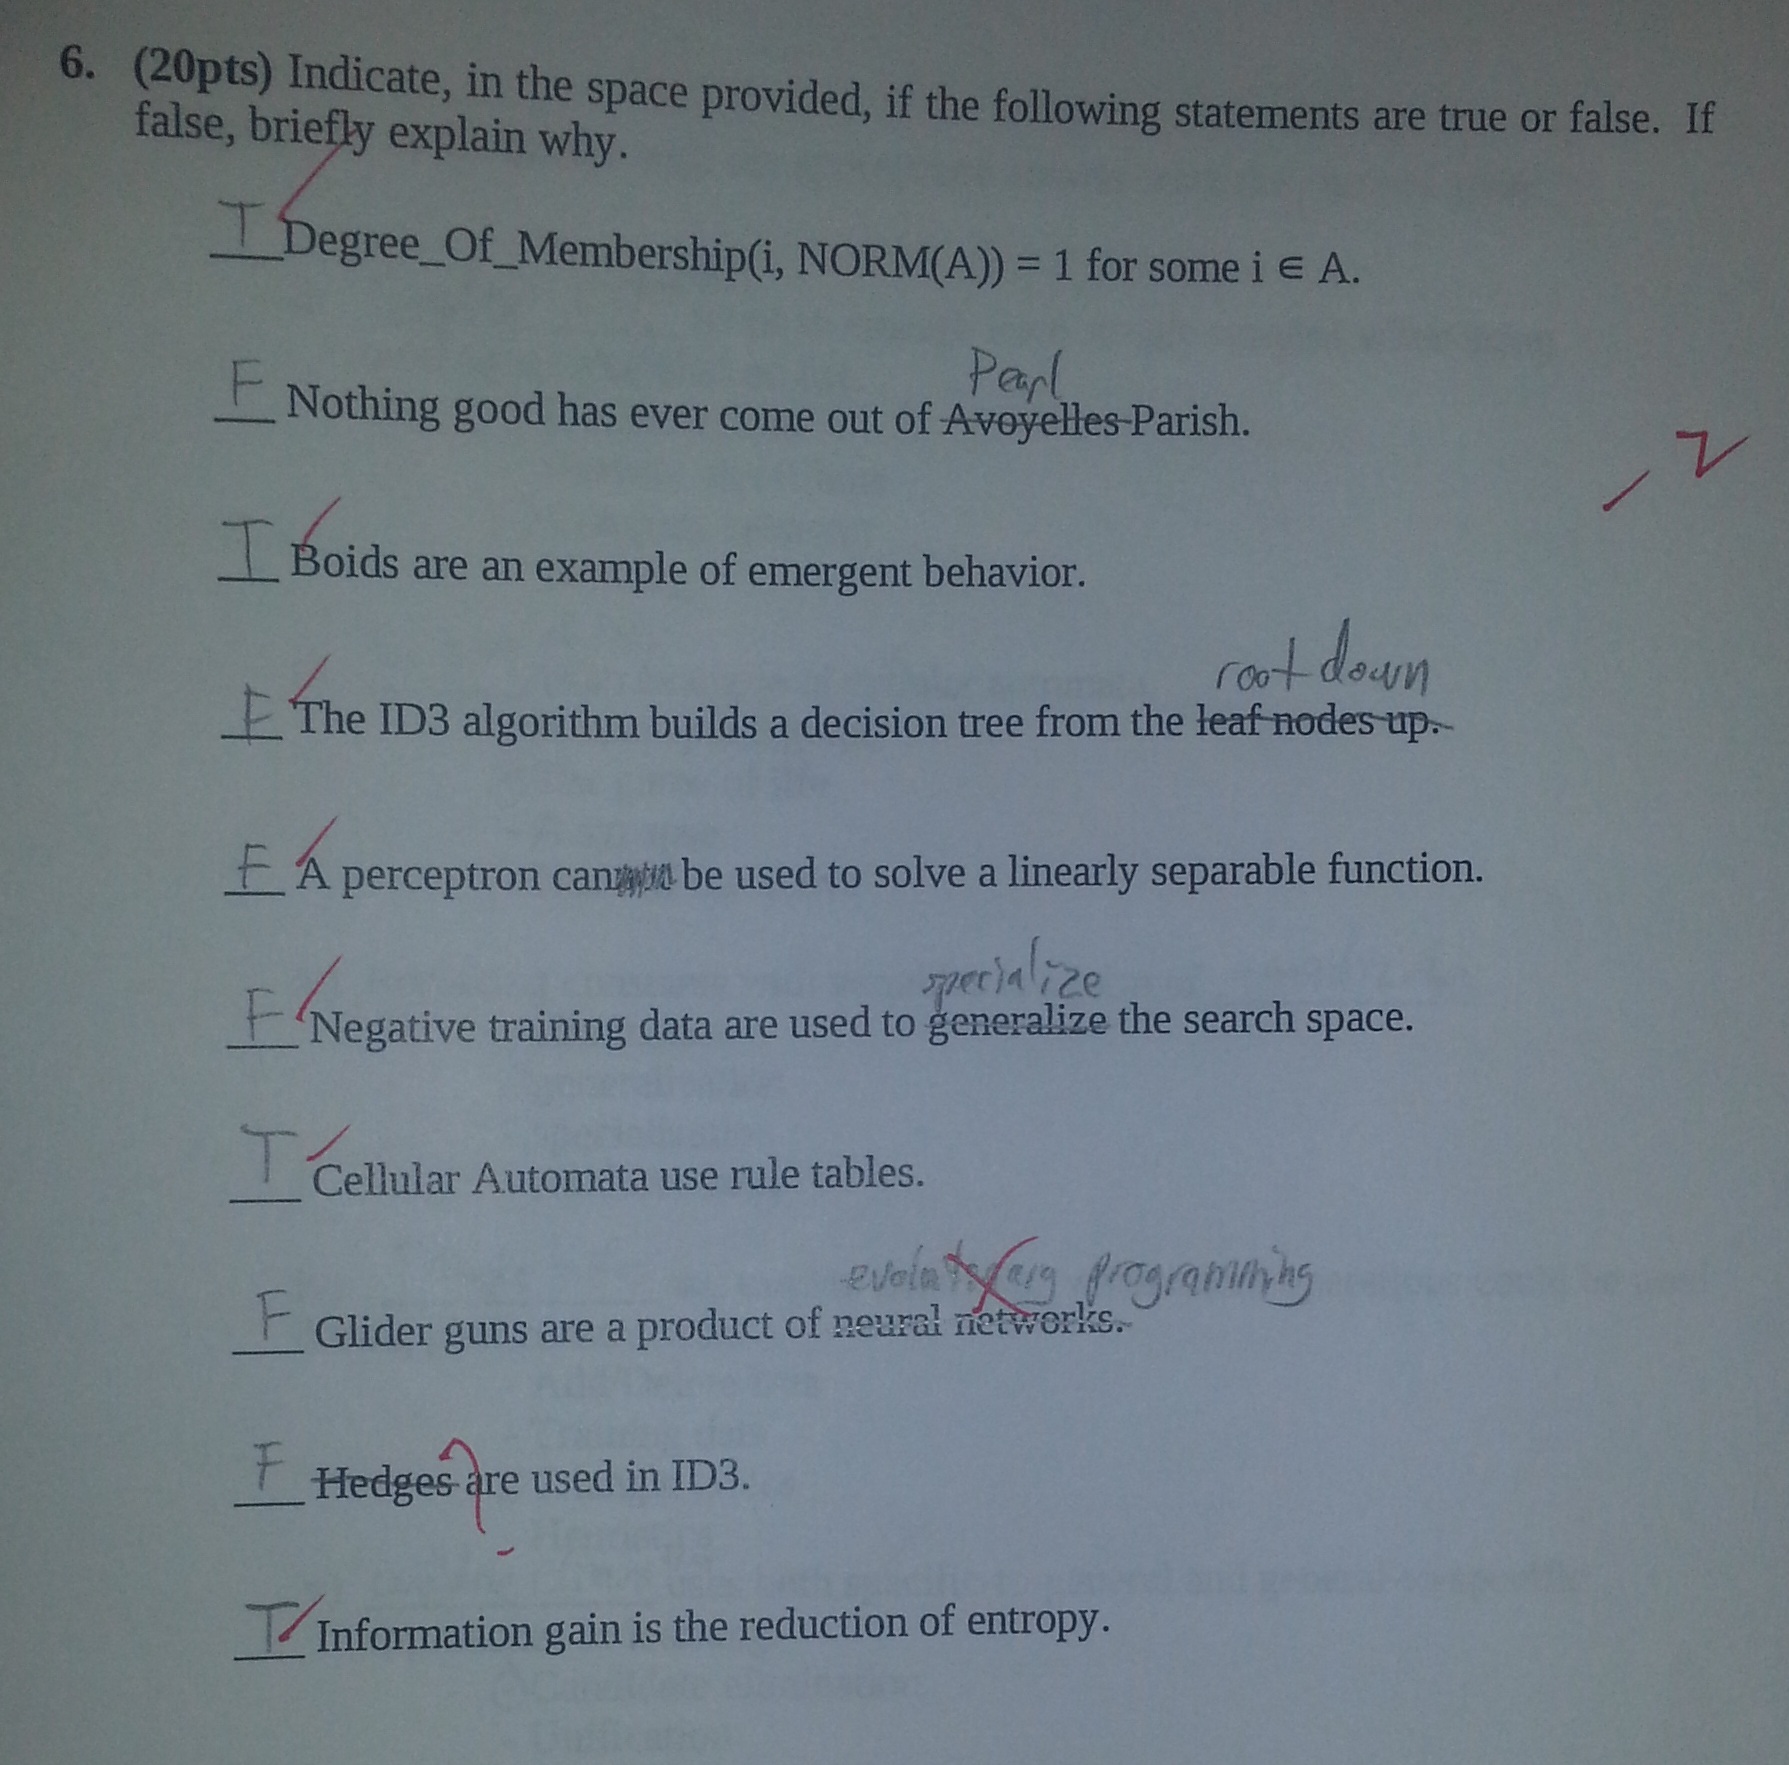 6. (20pts) Indicate, in the space provided, if the following statements are true or false. If
false, briefly explain why.
T Degree_Of_Membership(i, NORM(A)) = 1 for some i ∈ A.
Pearl
F Nothing good has ever come out of Avoyelles Parish.
-2
T Boids are an example of emergent behavior.
root down
F The ID3 algorithm builds a decision tree from the leaf nodes up.
F A perceptron can be used to solve a linearly separable function.
specialize
F Negative training data are used to generalize the search space.
T Cellular Automata use rule tables.
evolutionary programming
F Glider guns are a product of neural networks.
F Hedges are used in ID3.
?
T Information gain is the reduction of entropy.